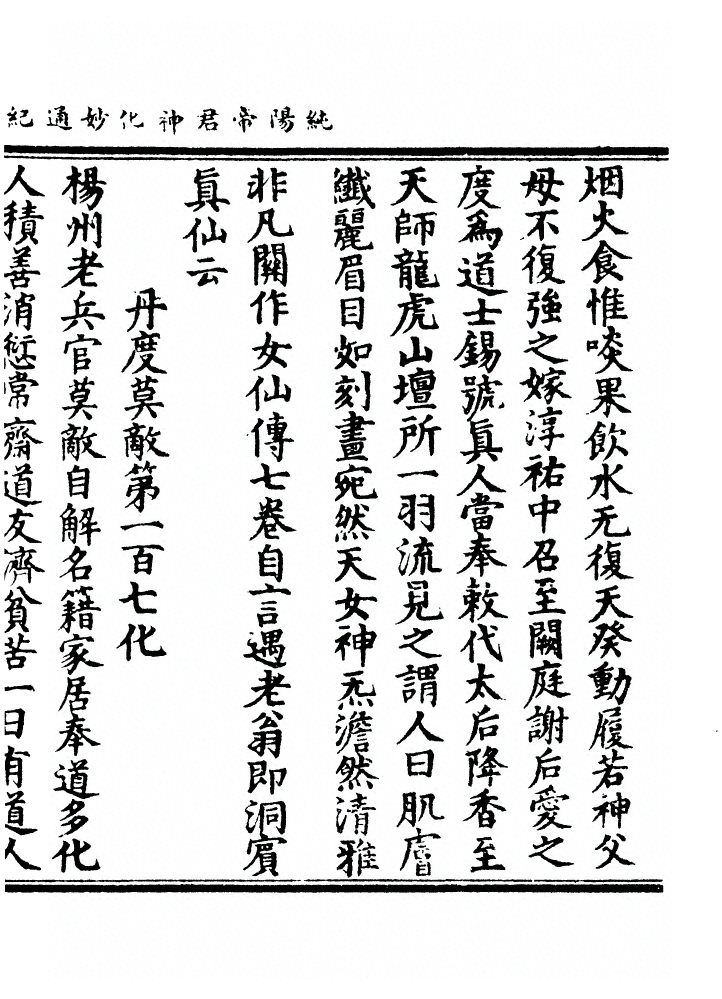 純陽帝君神化妙通紀
烟火食惟啖果飲水无復天癸動履若神父
母不復強之嫁淳祐中召至闕庭謝后愛之
度爲道士錫號眞人當奉敕代太后降香至
天師龍虎山壇所一羽流見之謂人曰肌膚
纖麗眉目如刻畫宛然天女神炁澹然清雅
非凡關作女仙傳七卷自言遇老翁即洞賓
眞仙云
丹度莫敵第一百七化
楊州老兵官莫敵自解名籍家居奉道多化
人積善消愆常齋道友濟貧苦一日有道人